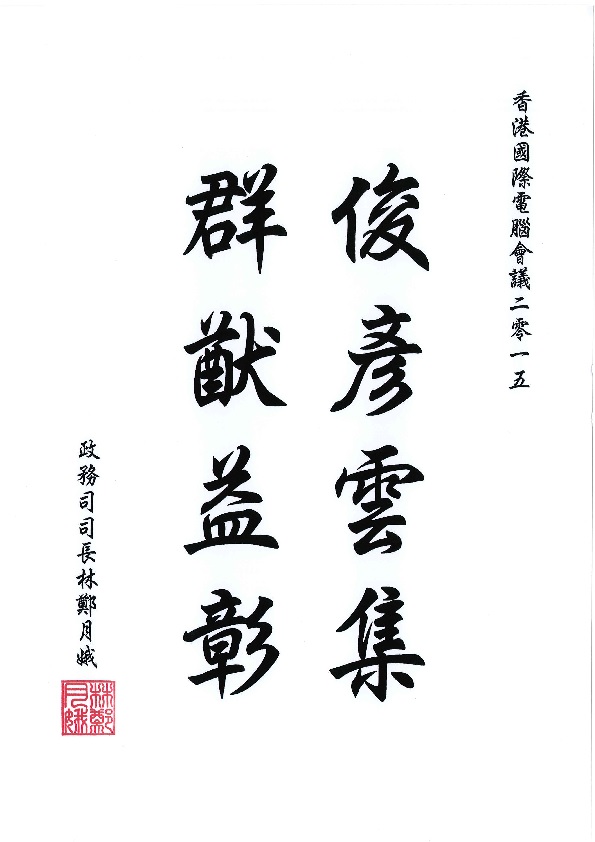 香港國際電腦會議二零一五
俊彥雲集
群猷益彰
政務司司長林鄭月娥
林鄭月娥